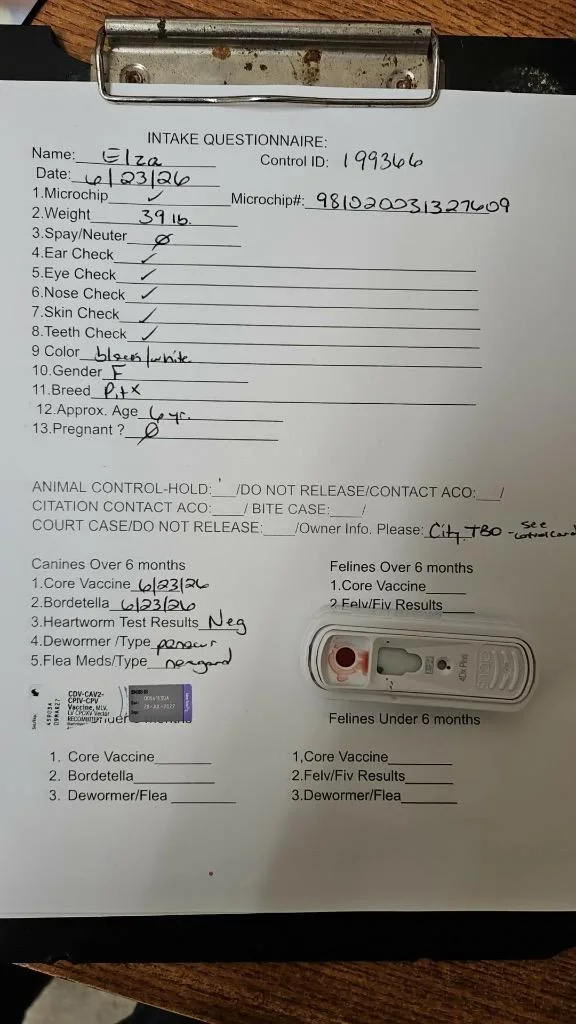 INTAKE QUESTIONNAIRE:
Name: Elza Control ID: 199366
Date: 6/23/26
1.Microchip ✓ Microchip#: 981020031327609
2.Weight 39 lb.
3.Spay/Neuter Ø
4.Ear Check ✓
5.Eye Check ✓
6.Nose Check ✓
7.Skin Check ✓
8.Teeth Check ✓
9 Color black/white
10.Gender F
11.Breed Pit X
12.Approx. Age 6 yr.
13.Pregnant ? Ø
ANIMAL CONTROL-HOLD:___/DO NOT RELEASE/CONTACT ACO:___/
CITATION CONTACT ACO:____/ BITE CASE:____/
COURT CASE/DO NOT RELEASE:____/Owner Info. Please: City TBO - see control card
Canines Over 6 months
1.Core Vaccine 6/23/26
2.Bordetella 6/23/26
3.Heartworm Test Results Neg
4.Dewormer /Type panacur
5.Flea Meds/Type nexgard
Felines Over 6 months
1.Core Vaccine
2.Felv/Fiv Results
4Dx Plus
CDV-CAV2-
CPIV-CPV
Vaccine, MLV,
1. Core Vaccine
2. Bordetella
3. Dewormer/Flea
Felines Under 6 months
1,Core Vaccine
2.Felv/Fiv Results
3.Dewormer/Flea